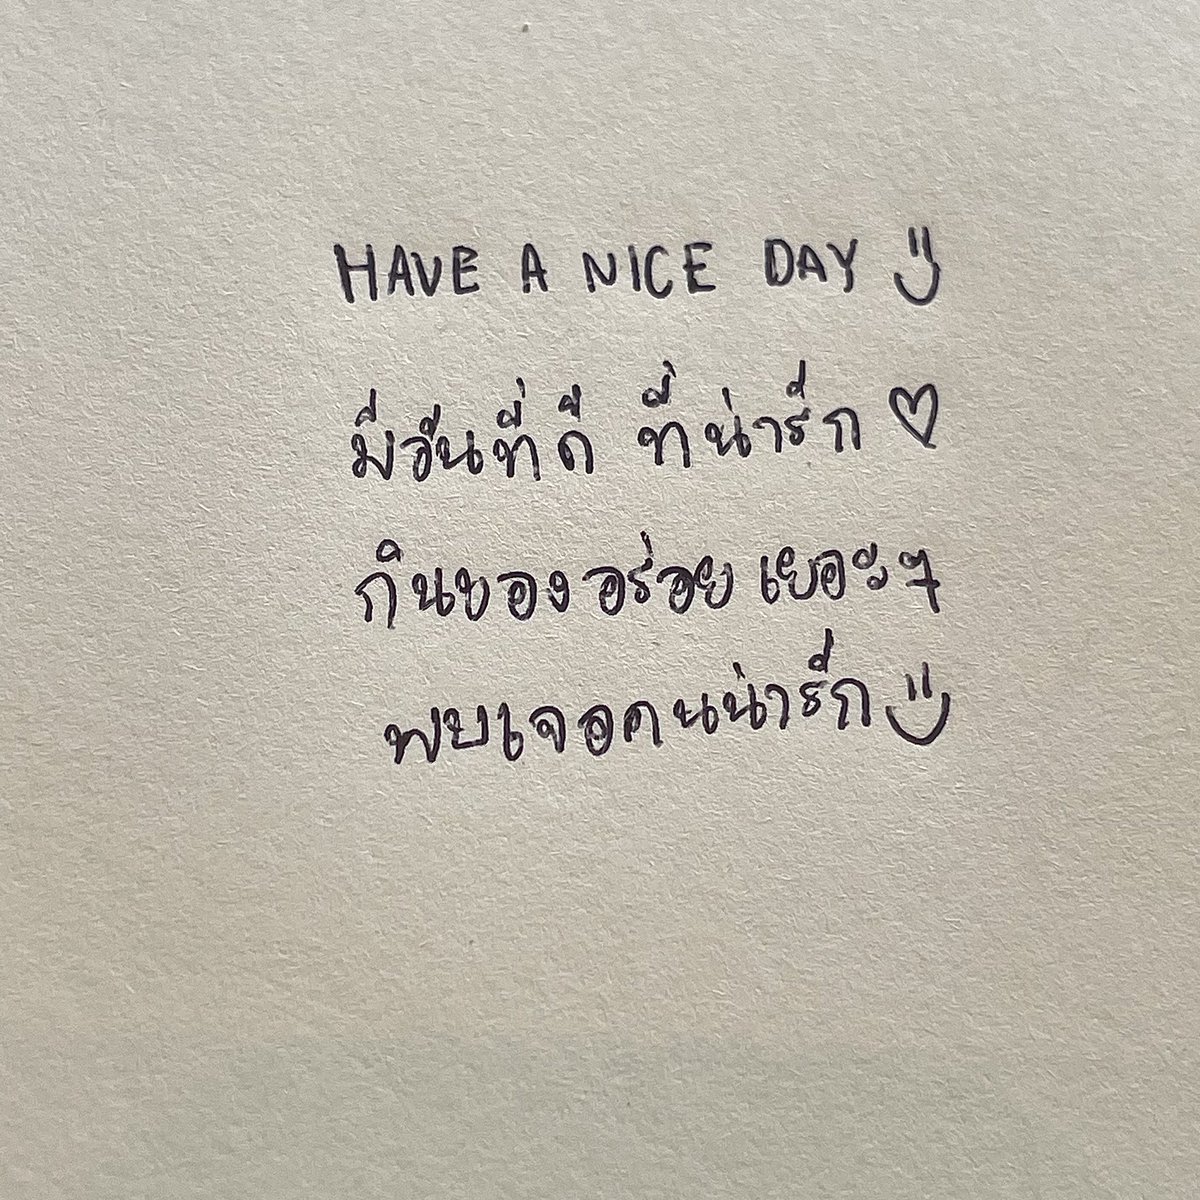 HAVE A NICE DAY
มีวันที่ดี ที่น่ารัก ♡
กินของอร่อย เยอะๆ
พบเจอคนน่ารัก